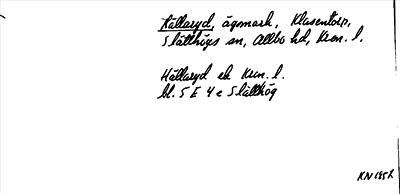 Hällaryd, ägomark, Klasentorp,
Slätthögs sn, Allbo hd, Kron. l.
Hällaryd ek Kron. l.
bl. 5 E 4 e Slätthög
KN 185 R